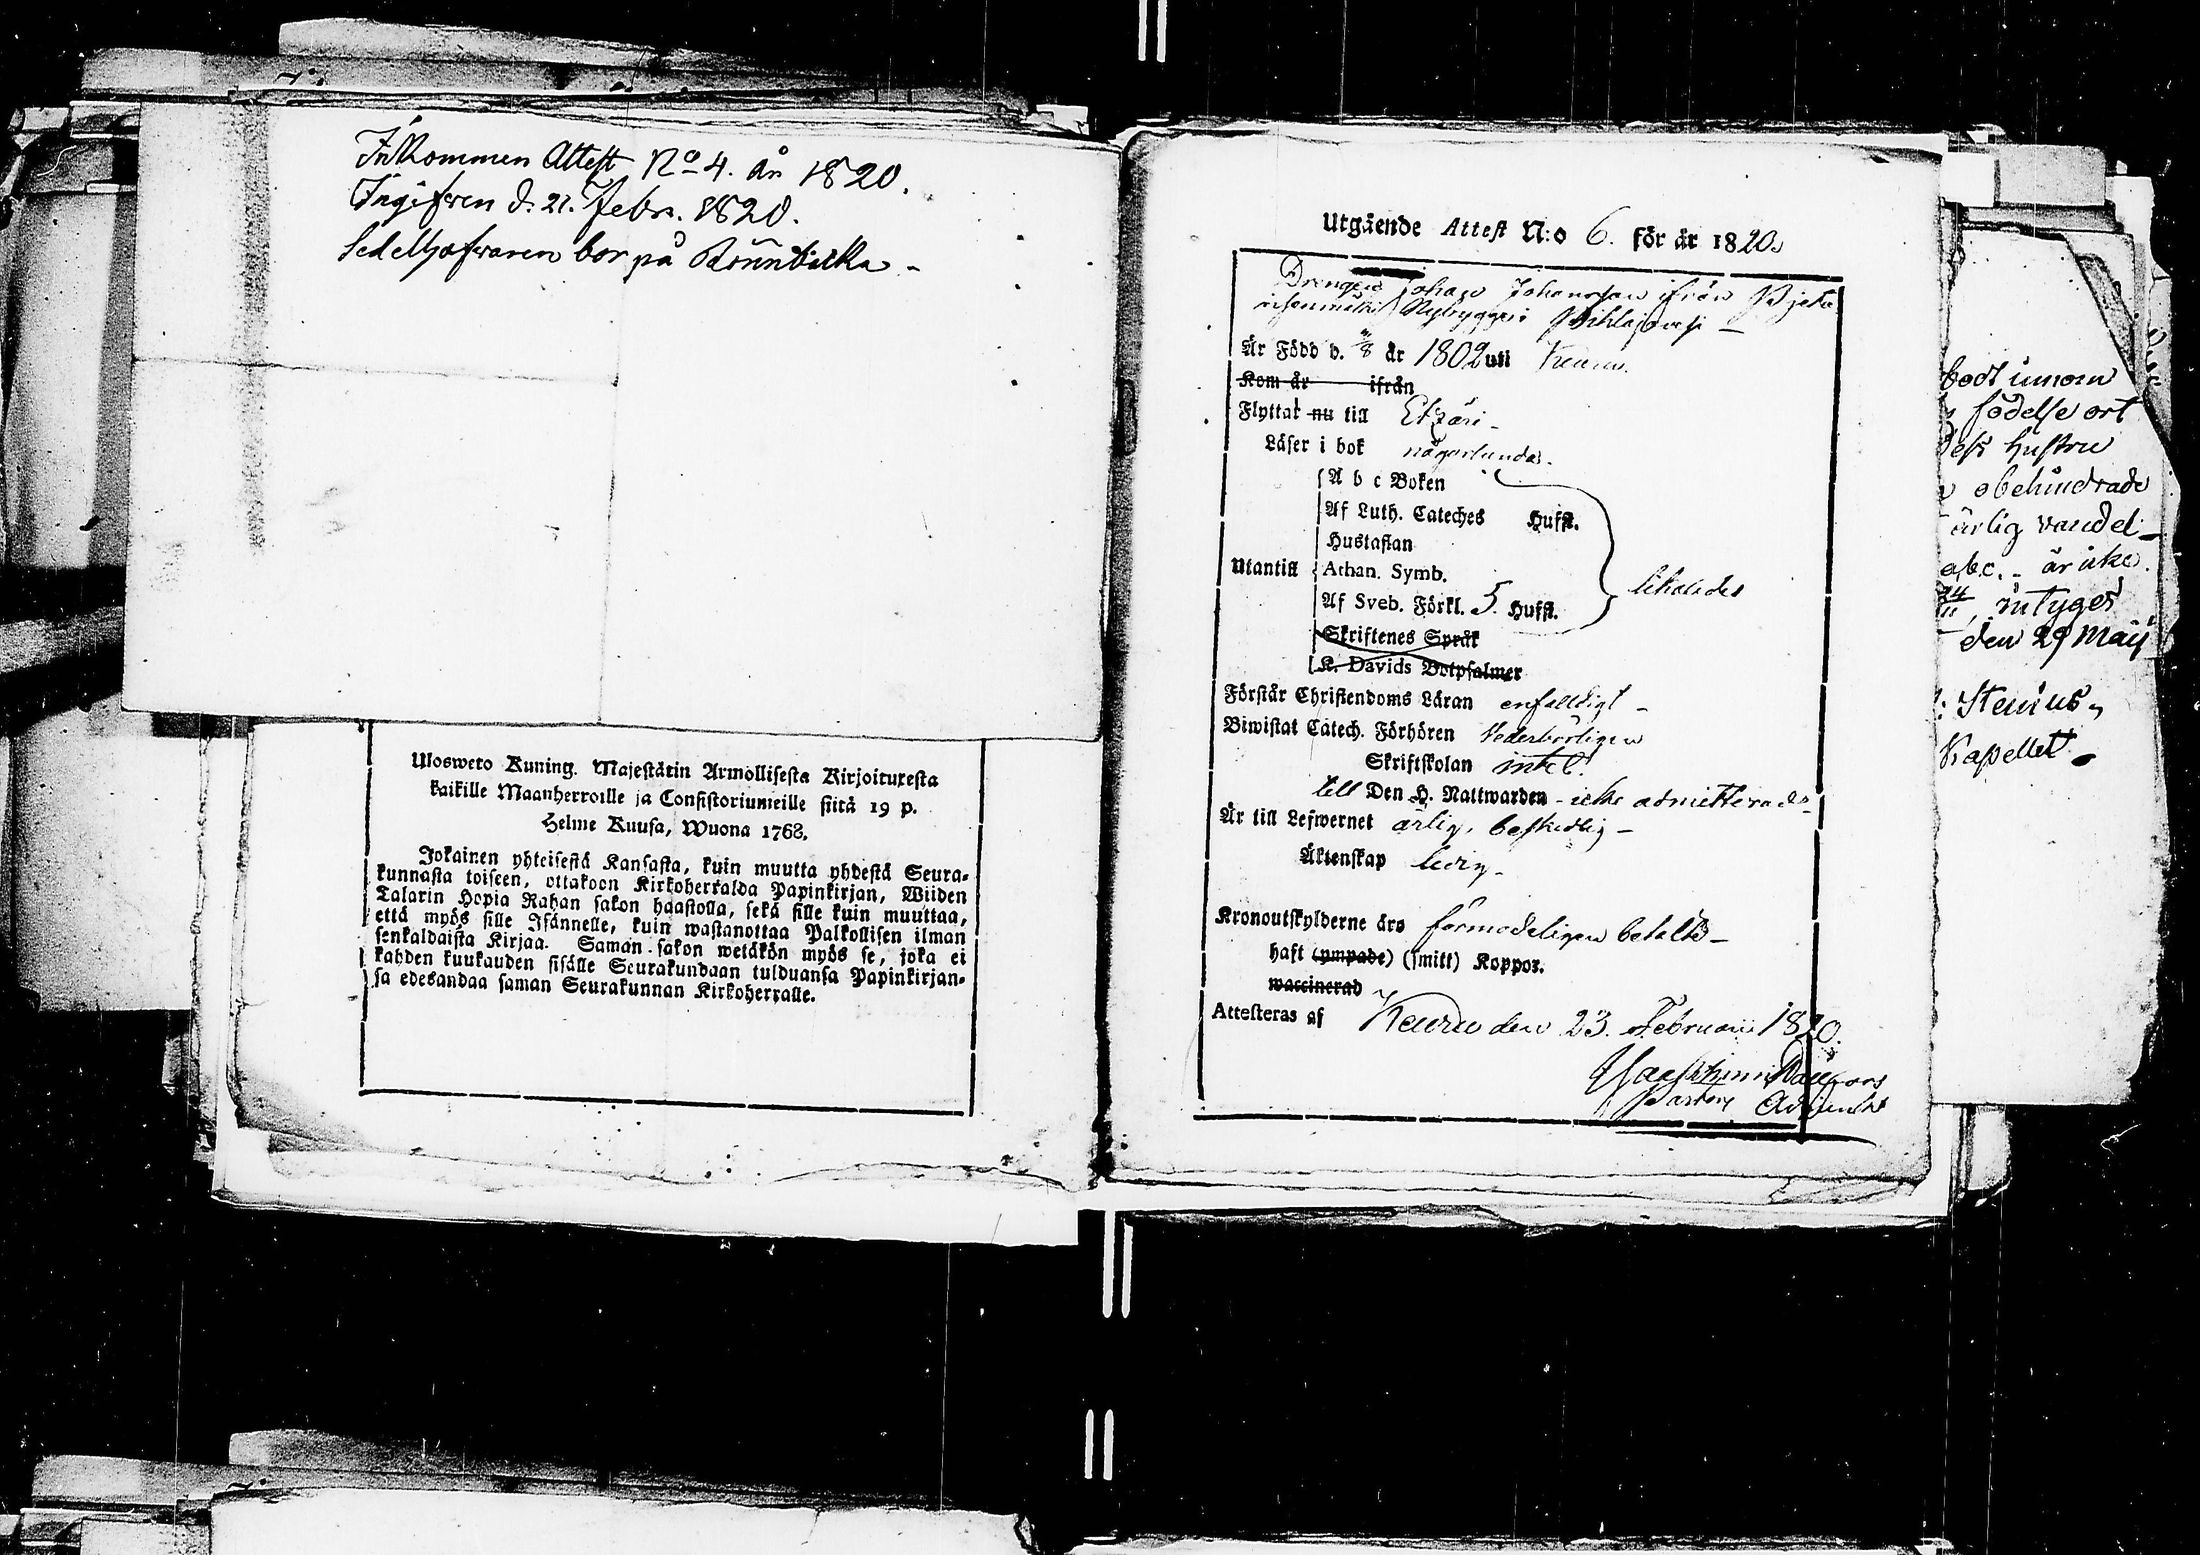 Inkommen Attest No 4. år 1820.
Ingifven d. 21. Febr. 1820.
Sedelhafvaren bor på Rönnbacka -
Ulosweto Kuning. Majestätin Armollisesta Kirjoituxesta
kaikille Maanherroille ja Consistoriumeille siitä 19 p.
Helme Kuusa, Wuona 1768.
Jokainen yhteisestä Kansasta, kuin muutta yhdestä Seura-
kunnasta toiseen, ottakoon Kirkoherralda Papinkirjan, Wiiden
Talarin Hopia Rahan sakon haastolla, sekä sille kuin muuttaa,
että myös sille Isännelle, kuin wastanottaa Palkollisen ilman
senkaldaista Kirjaa. Saman sakon wetäkön myös se, joka ei
kahden kuukauden sisälle Seurakundaan tulduansa Papinkirjan-
sa edesandaa saman Seurakunnan Kirkoherralle.
Utgående Attest N:o 6. för år 1820.
Drengen Johan Johansson ifrån
Nybygget
Är Född d. år 1802 uti Keuru.
Kom år ifrån
Flyttat nu till Etzäri -
Läser i bok någorlunda.
A b c Boken
Af Luth. Cateches Hufst.
Hustaflan
Utantill Athan. Symb. likaledes
Af Sveb. Förkl. 5 Hufst.
Skriftenes Språk
K. Davids Botpsalmer
Förstår Christendoms Läran enfalldigt -
Biwistat Catech. Förhören Vederbörligen
Skriftskolan intet.
till Den H. Nattwarden - icke admitterad
Är till Lefwernet ärlig, beskedlig -
Äktenskap ledig -
Kronoutskylderne äro förmodeligen betalte -
haft (ympade) (smitt) Koppor.
waccinerad
Attesteras af Keuru den 23. Februarii 1820.
Pastors Adjunkt
bodt innom
födelse ort
dess hustru
obehindrade
ärlig vandel -
abc. - är icke
intyges
den 29 Maij
Stenius,
Kapellet -